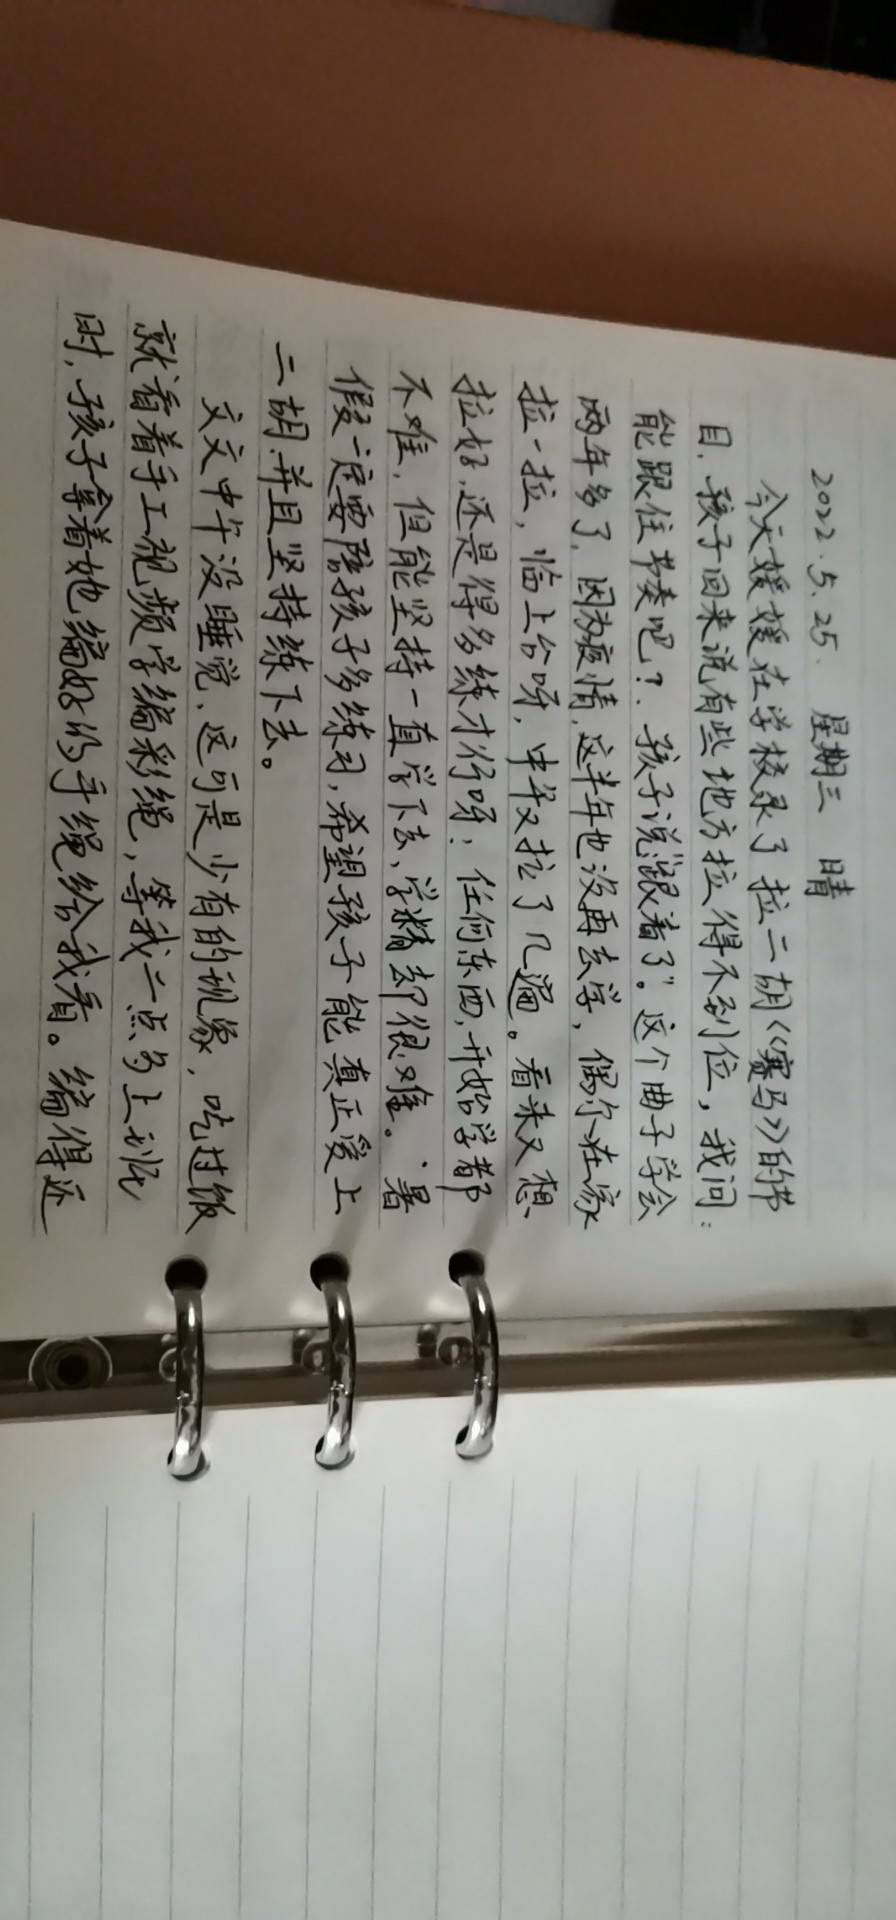 2022.5.25. 星期三 晴
今天媛媛在学校录了拉二胡《赛马》的节
目,孩子回来说有些地方拉得不到位,我问:
能跟住节奏吧?.孩子说“跟着了”。这个曲子学会
两年多了,因为疫情,这半年也没再去学,偶尔在家
拉一拉,临上台呀,中午又拉了几遍。看来又想
拉好,还是得多练才行呀!任何东西,开始学都
不难,但能坚持一直学下去、学精却很难。暑
假一定要陪孩子多练习,希望孩子能真正爱上
二胡.并且坚持练下去。
文文中午没睡觉、这可是少有的现象,吃过饭
就看着手工视频学编彩绳,等我一点多上班
时,孩子拿着她编好的手绳给我看。编得还